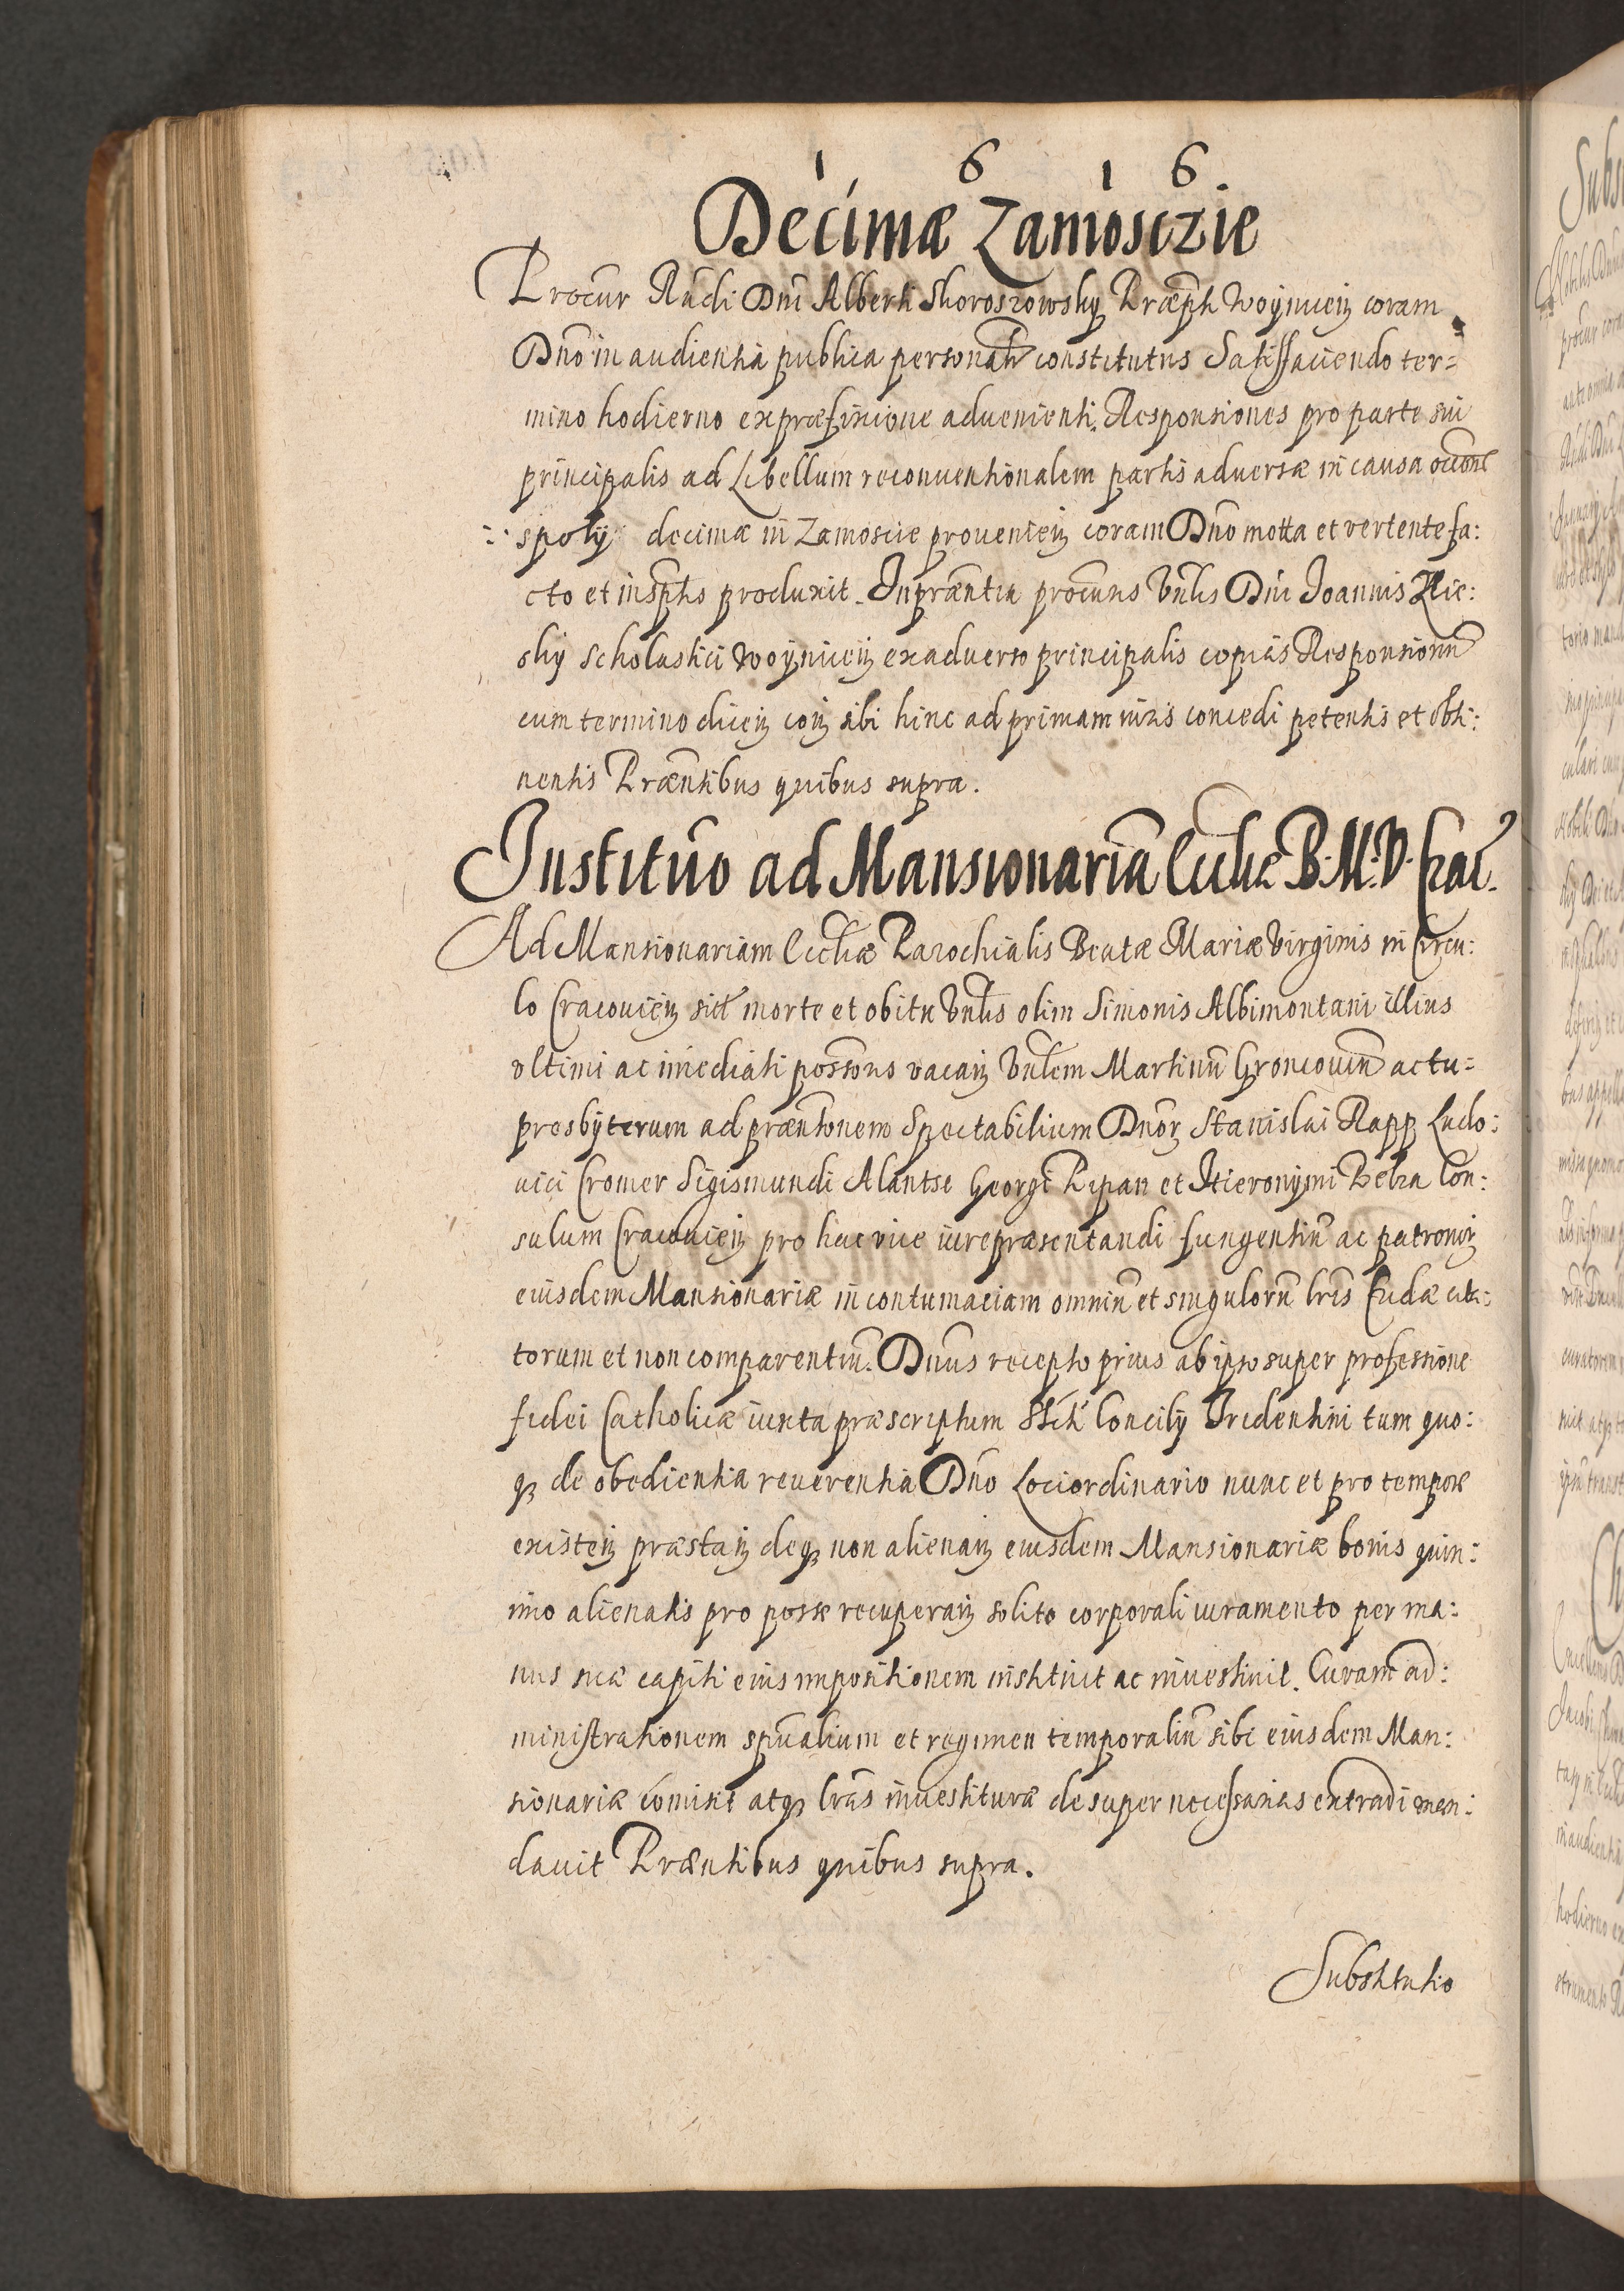 1 6 1 6
Decimæ Zamosczie
Procur Rñdi Dni Alberti Skoroszowsky Præpti Woynicẽn coram
Dno in audientia publica personalr constitutus Satisfaciendo ter=
mino hodierno ex præfixione aduenienti. Responsiones pro parte sui
principalis ad Libellum reconuentionalem partis aduersæ in causa occõne
spoly decimæ in Zamoscie prouenieñ coram Dno mota et vertente fa:
cto et in sptis produxit. In præntia procuris Vnlis Dni Joannis
sky Scholastici Woynicẽn ex aduerso principalis copias Responsionũ
cum termino diceñ coñ sibi hinc ad primam iuris concedi petentis et obti:
nentis Præntibus quibus supra.
Institutio ad Mansionariã Ecclæ B. M. V. Crac.
Ad Mansionariam Eccliæ Parochialis Beatæ Mariæ Virginis in Circu:
lo Cracouieñ sitæ morte et obitu Vnlis olim Simonis Albimontani illius
vltimi ac imediati possoris vacañ Vnlem Martinũ Groncouiũ actu=
presbyterum ad præntõnem Spectabilium Dnor Stanislai Rapp Ludo:
uici Cromer Sigismundi Alantse Georgi Pipan et Hieronymi Beka Con:
sulum Cracouieñ pro hac vice iure præsentandi fungentiũ ac patronor
eiusdem Mansionariæ in contumaciam omniũ et singulorũ lris Cudæ cita:
torum et non comparentiũ. Dnus recepto prius ab ipso super professione
fidei Catholicæ iuxta præscriptum Scti Concily Tridentini tum quo:
q3 de obedientia reuerentia Dno Loci ordinario nunc et pro tempore
existeñ præstañ deq3 non alienañ eiusdem Mansionariæ bonis quin:
imo alienatis pro posse recuperañ solito corporali iuramento per ma:
nus suæ capiti eius impositionem instituit ac inuestiuit. Curamq ad:
ministrationem spũalium et regimen temporaliũ sibi eiusdem Man:
sionariæ comisit atq3 lras inuestituræ desuper necessarias extradi man:
dauit Præntibus quibus supra.
Substitutio